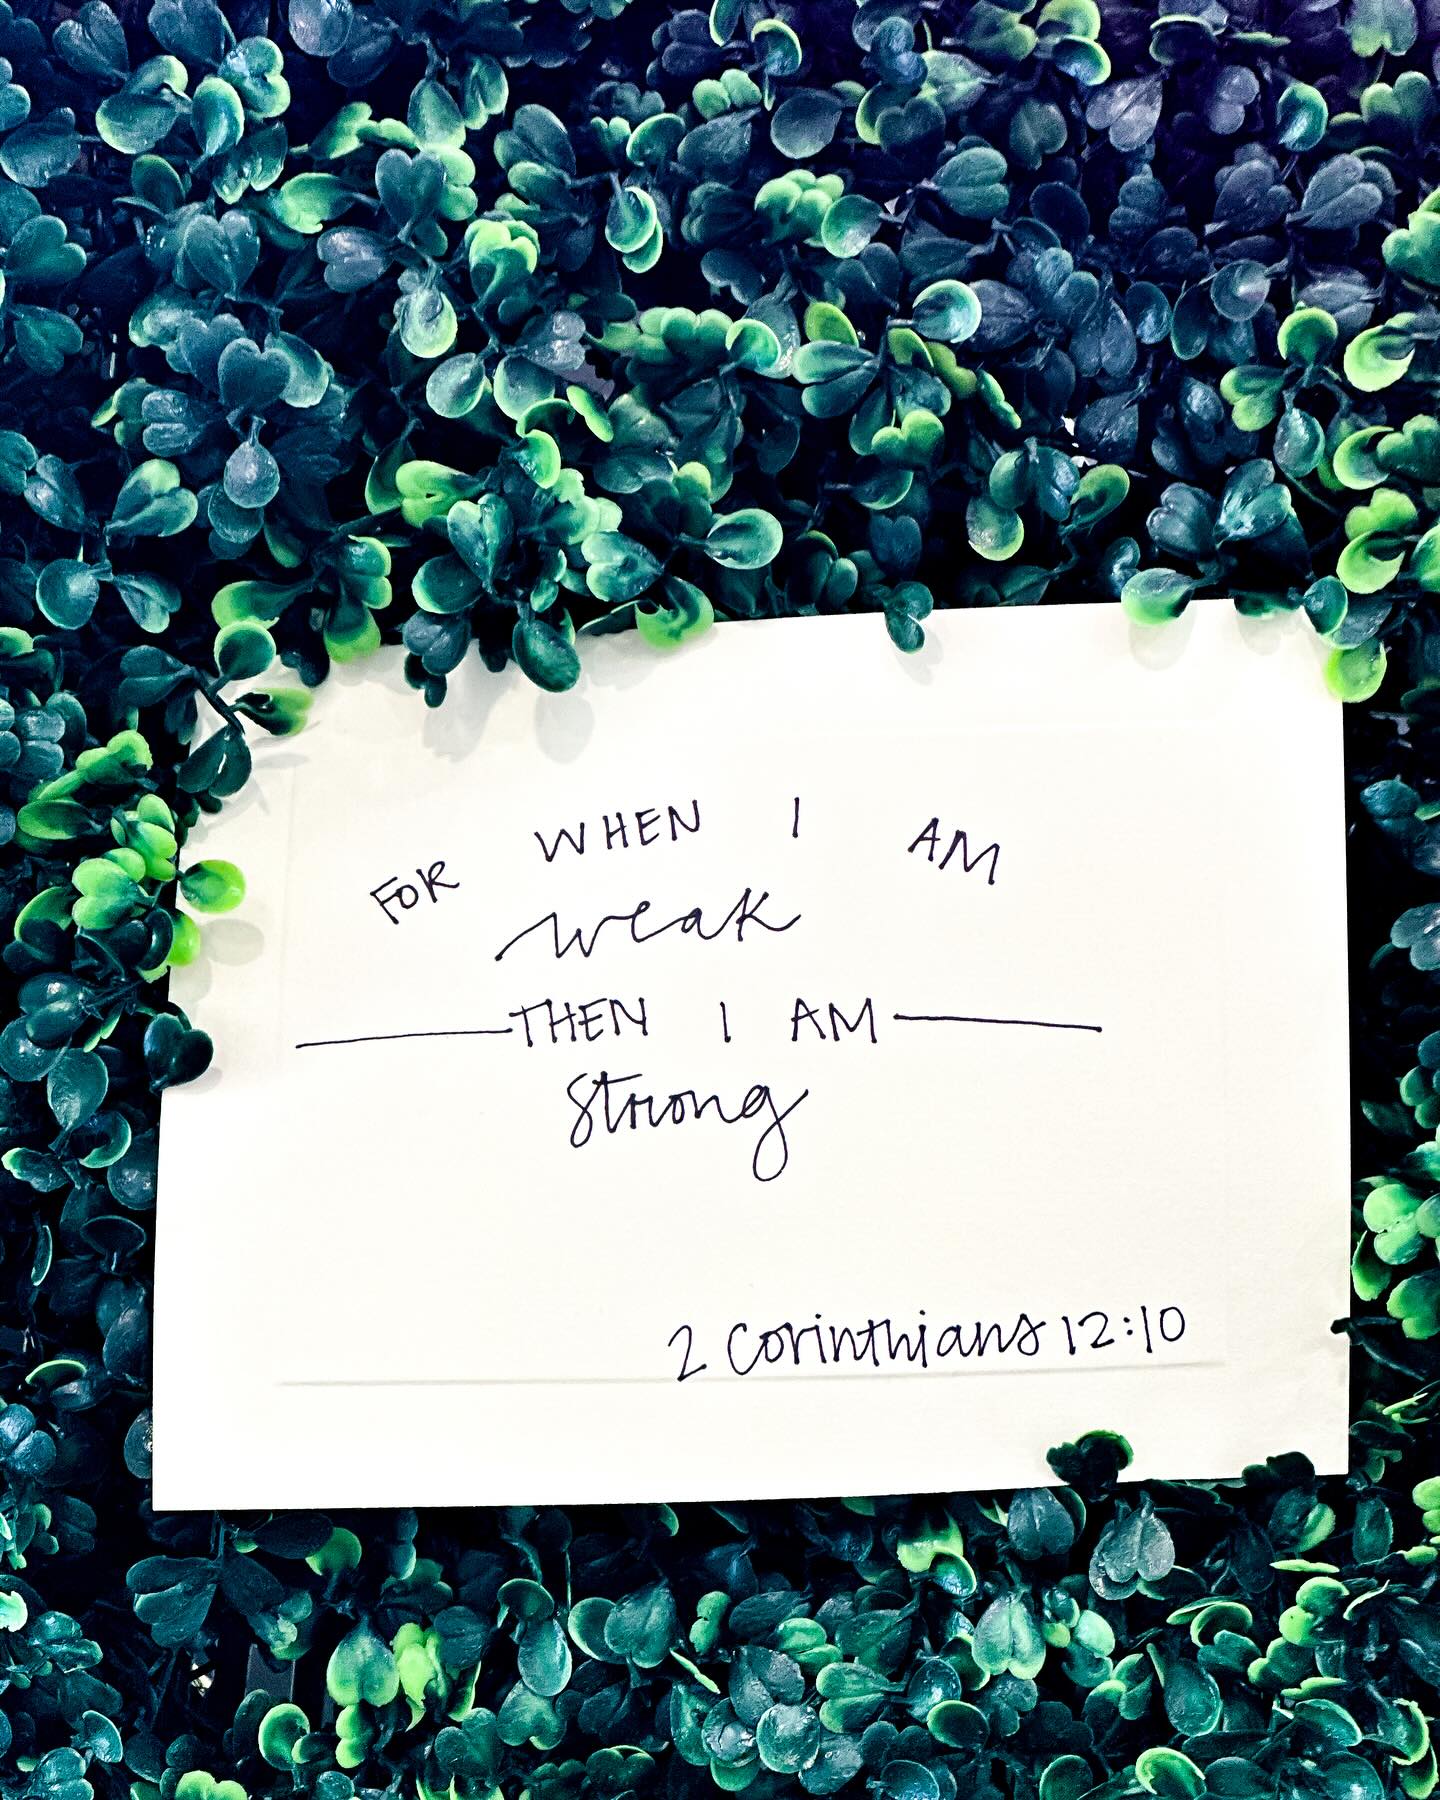 FOR WHEN I AM
weak
THEN I AM
strong
2 Corinthians 12:10